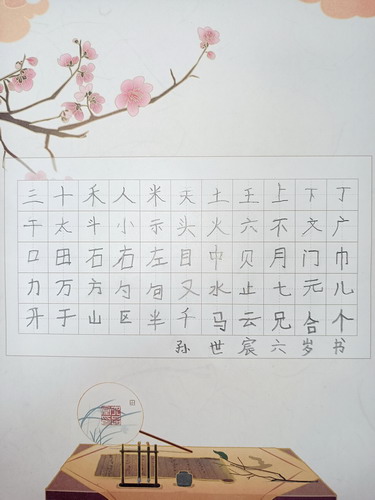 三十禾人米天土王上下丁
干太斗小示头火六不文广
口田石右左目中贝月门巾
力万方勺旬又水止七元儿
开于山区半千马云兄合个
孙世宸六岁书